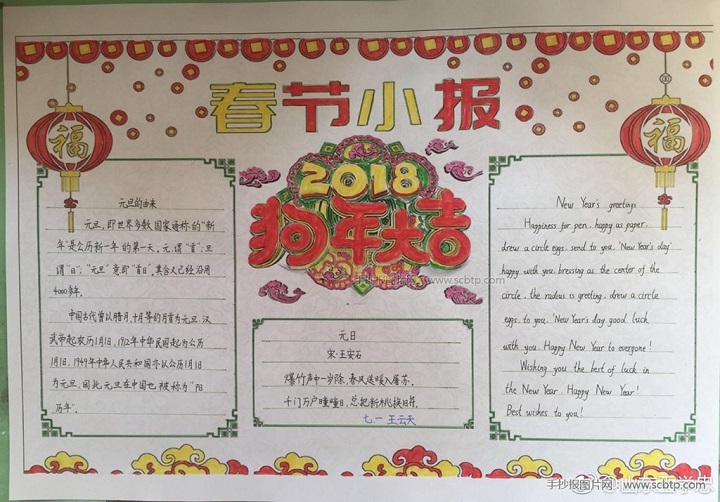 春节小报
福
福
2018
狗年大吉
元旦的由来
元旦,即世界多数国家通称的“新
年”是公历新一年的第一天。元,谓“首”;旦
谓“日”;“元旦”意即“首日”。其含义已经沿用
4000多年。
中国古代曾以腊月、十月等的月首为元旦,汉
武帝起农历1月1日,1912年中华民国起为公历
1月1日,1949年中华人民共和国亦以公历1月1日
为元旦,因此元旦在中国也被称为“阳
历年”。
元日
宋·王安石
爆竹声中一岁除,春风送暖入屠苏。
千门万户曈曈日,总把新桃换旧符。
七一 王云天
New Year's greetings
Happiness for pen, happy as paper,
drew a circle eggs, send to you. 'New Year's day'
happy with you, blessing as the center of the
circle, the radius is greeting, drew a circle
eggs, to you. 'New Year's day good luck
with you. Happy New Year to everyone!
Wishing you the best of luck in
the New Year. Happy New Year!
Best wishes to you!
手抄报图片网 www.scbtp.com
手抄报图片网:www.scbtp.com